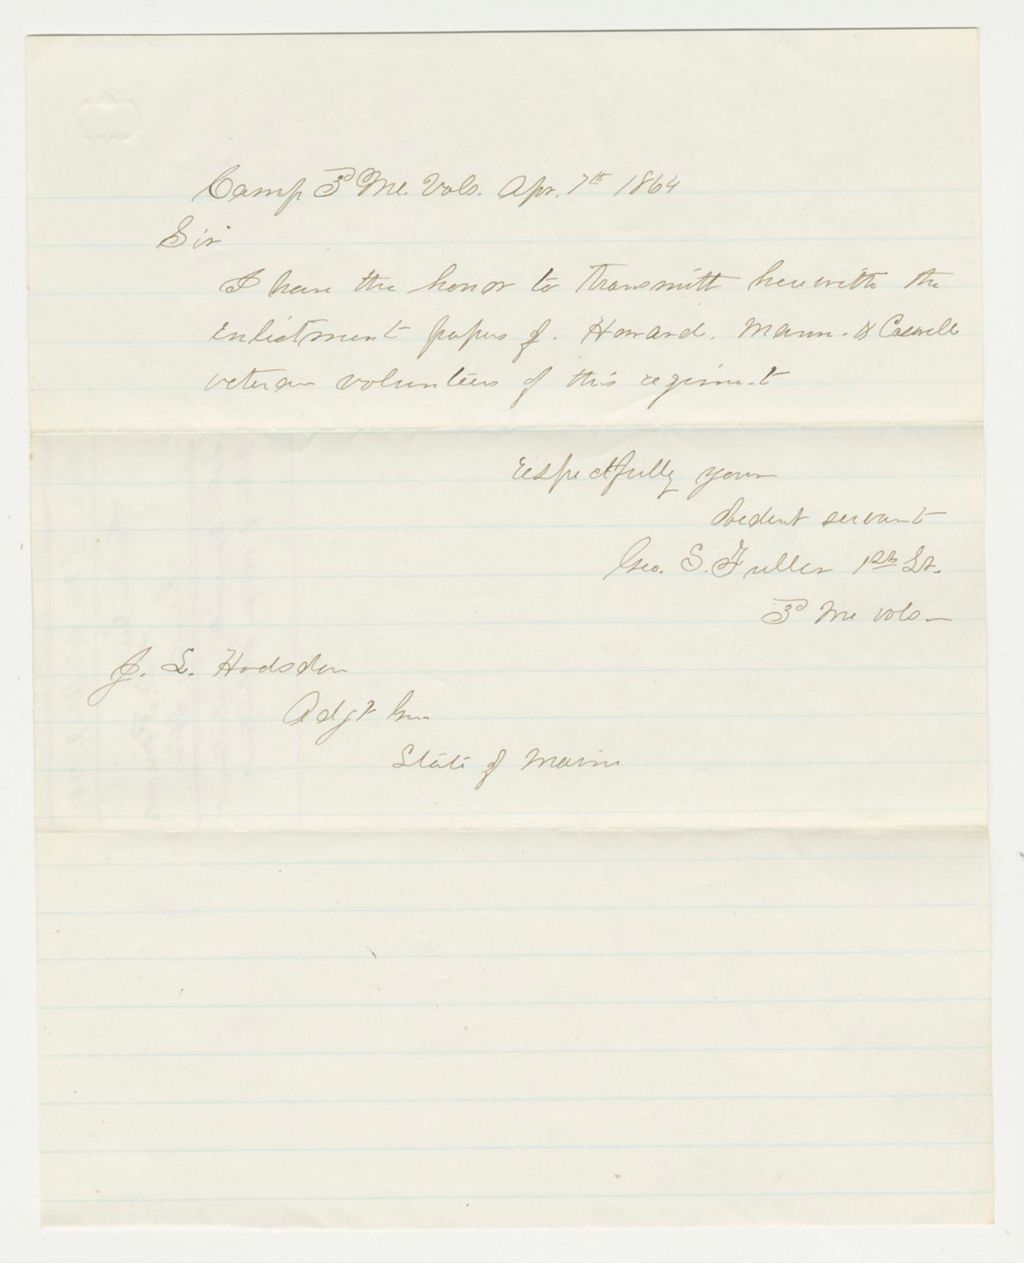 Camp 3d Me Vols. Apr. 7th 1864
Sir
I have the honor to transmitt herewith the
enlistment papers of. Howard. Mann. & Caswell
veteran volunteers of this regiment
respectfully your
obedent servant
Geo. S. Fuller 1st Lt.
3d Me vols
J. L. Hodsdon
Adgt Gen
State of Maine